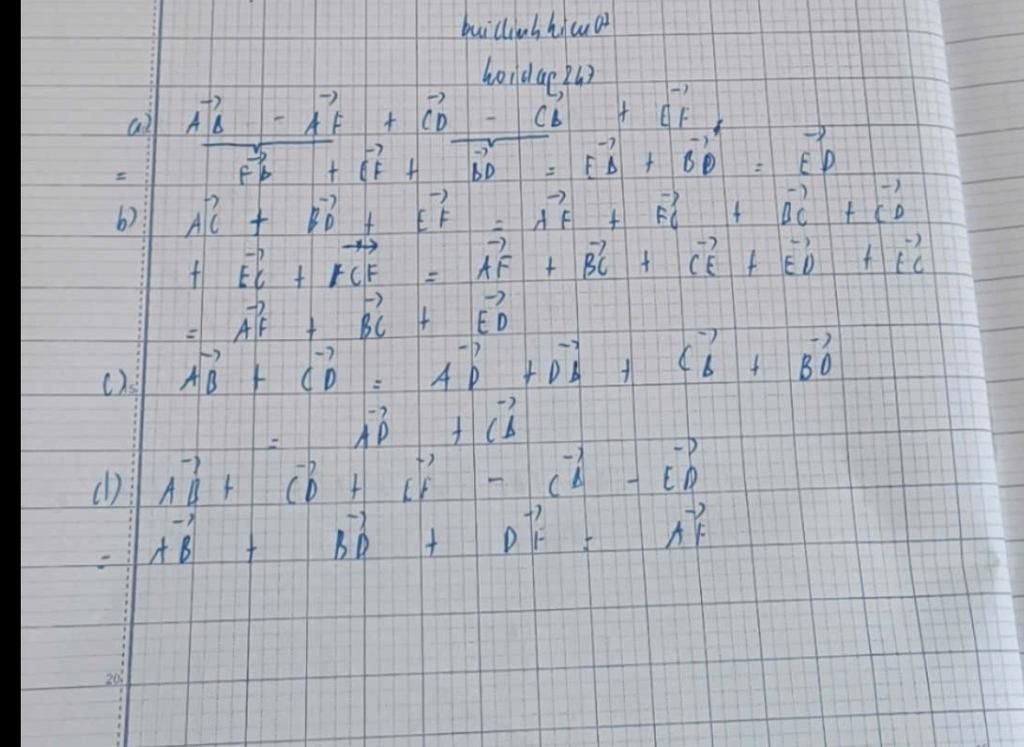 buillinhhieu07
hoidap247
a) AB→ - AF→ + CD→ - CB→ + EF→
= FB→ + EF→ + BD→ = EB→ + BD→ = ED→
b) AC→ + BD→ + EF→ = AF→ + FC→ + BC→ + CD→
+ EC→ + CF→ = AF→ + BC→ + CE→ + ED→ + EC→
= AF→ + BC→ + ED→
c) AB→ + CD→ = AD→ + DB→ + CB→ + BD→
= AD→ + CB→
d) AB→ + CD→ + EF→ - CB→ - ED→
= AB→ + BD→ + DF→ = AF→
20